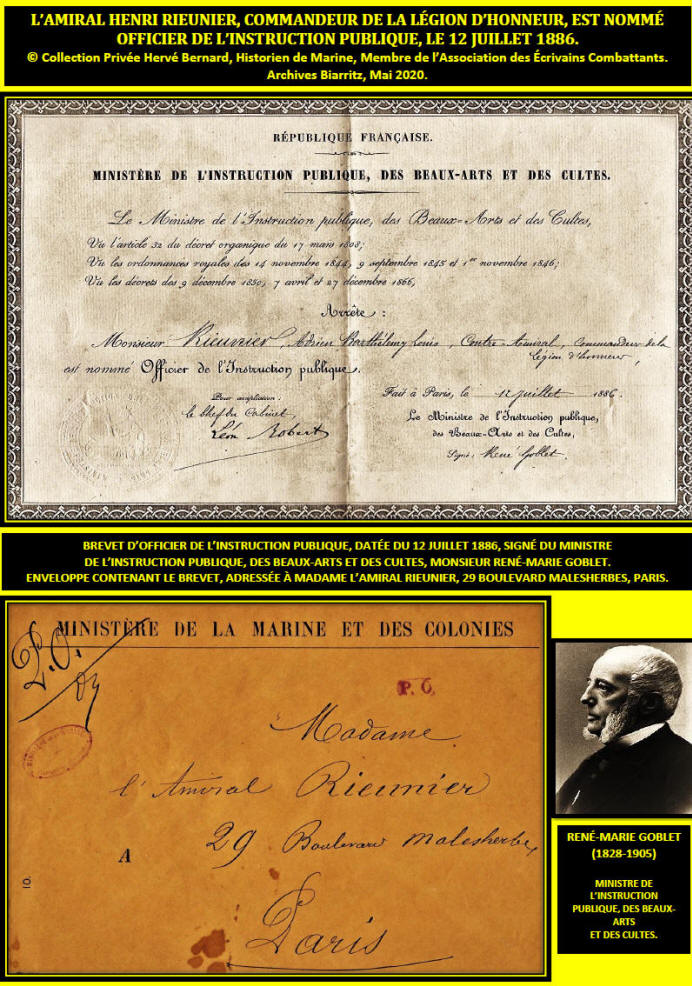 L'AMIRAL HENRI RIEUNIER, COMMANDEUR DE LA LÉGION D'HONNEUR, EST NOMMÉ
OFFICIER DE L'INSTRUCTION PUBLIQUE, LE 12 JUILLET 1886.
© Collection Privée Hervé Bernard, Historien de Marine, Membre de l'Association des Écrivains Combattants.
Archives Biarritz, Mai 2020.
RÉPUBLIQUE FRANÇAISE.
MINISTÈRE DE L'INSTRUCTION PUBLIQUE, DES BEAUX-ARTS ET DES CULTES.
Le Ministre de l'Instruction publique, des Beaux-Arts et des Cultes,
Vu l'article 32 du décret organique du 17 mars 1808;
Vu les ordonnances royales des 14 novembre 1844, 9 septembre 1845 et 1er novembre 1846;
Vu les décrets des 9 décembre 1850, 7 avril et 27 décembre 1866,
Arrête :
Monsieur Rieunier, Adrien Barthélemy Louis, Contre-Amiral, Commandeur de la
Légion d'honneur,
est nommé Officier de l'Instruction publique.
Pour ampliation :
Le Chef du Cabinet,
Léon Robert
Fait à Paris, le 12 juillet 1886.
Le Ministre de l'Instruction publique,
des Beaux-Arts et des Cultes,
Signé: René Goblet.
BREVET D'OFFICIER DE L'INSTRUCTION PUBLIQUE, DATÉE DU 12 JUILLET 1886, SIGNÉ DU MINISTRE
DE L'INSTRUCTION PUBLIQUE, DES BEAUX-ARTS ET DES CULTES, MONSIEUR RENÉ-MARIE GOBLET.
ENVELOPPE CONTENANT LE BREVET, ADRESSÉE À MADAME L'AMIRAL RIEUNIER, 29 BOULEVARD MALESHERBES, PARIS.
MINISTÈRE DE LA MARINE ET DES COLONIES
P.O.
P.O.
Madame
l'Amiral Rieunier
29 Boulevard Malesherbes
A
10.
Paris
RENÉ-MARIE GOBLET
(1828-1905)
MINISTRE DE
L'INSTRUCTION
PUBLIQUE, DES BEAUX-
ARTS
ET DES CULTES.